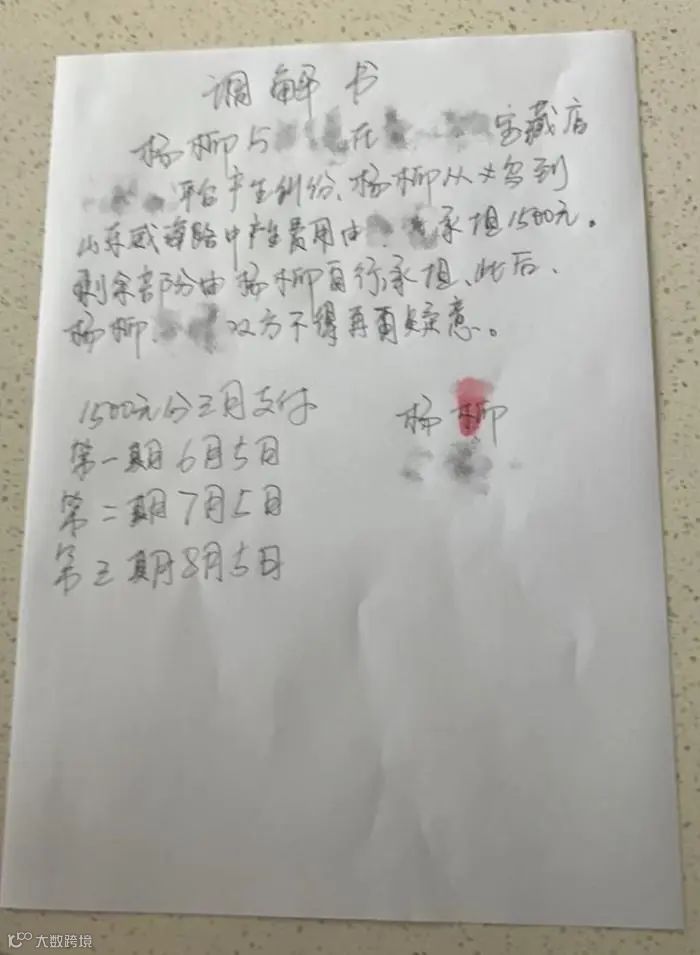 调解书
杨柳与 在 宝藏店
平台产生纠份、杨柳从义乌到
山东威海路中产生费用由 承担1500元。
剩余部份由杨柳自行承担、此后、
杨柳、 双方不得再有疑意。
1500元分三月支付
第一期6月5日
第二期7月5日
第三期8月5日
杨柳
大数跨境